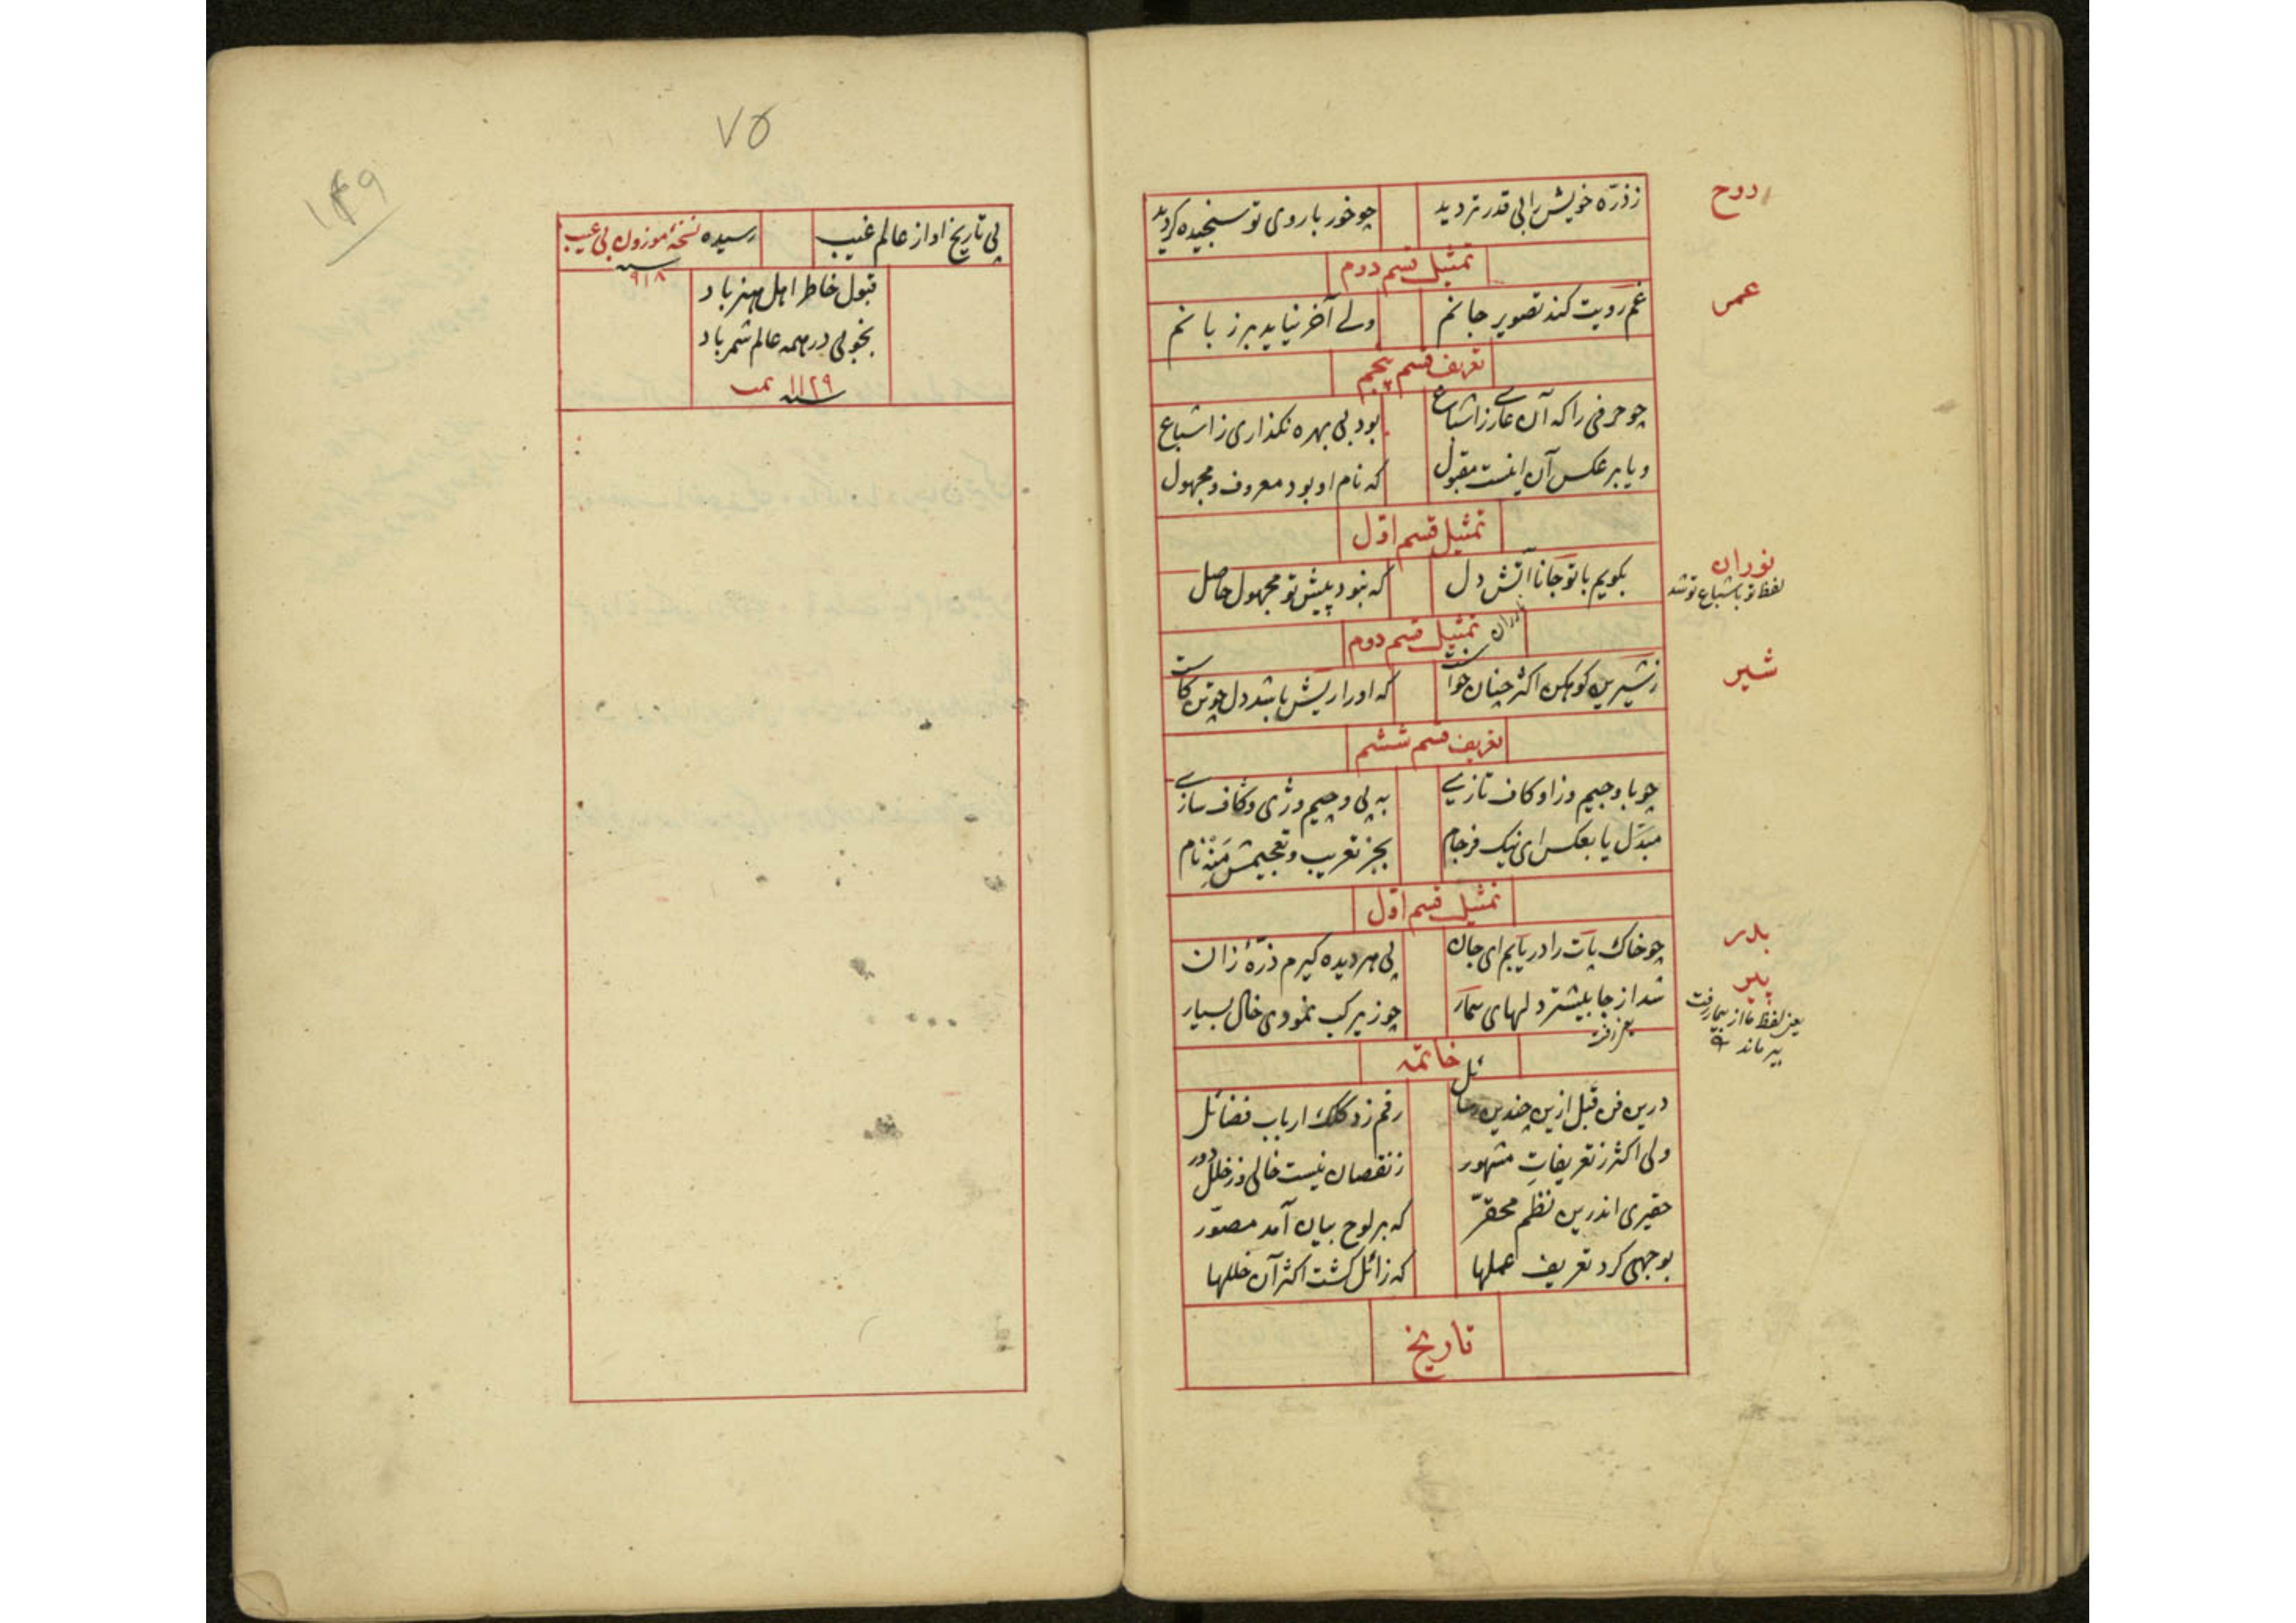 زذرّه خویش رابی قدرتر دید چو خور با روی تو سنجیده کردید
روح
تمثیل قسم دوم
غم رویت کند تصویر جانم ولے آخر نیاید بر زبانم
عمر
تعریف قسم پنجم
چو حرفی را که آن عارے ز اشباع بود بی بهره نکذاری ز اشباع
و یا بر عکس آن اینست مقبول که نام او بود معروف و مجهول
تمثیل قسم اوّل
بکویم با تو جانا آتش دل که نبود پیش تو مجهول حاصل
نوران
لفظ تو باشباع تو شد
تمثیل قسم دوم
ز شیرین کوهکن اکثر چنان خواست که او را ریش باشد دل چو تن کاست
شیر
تعریف قسم ششم
چو با و جیم و زا و کاف تازے به پی و چیم و ژی و گاف سازے
مبدّل یا بعکس ای نیک فرجام بجز تعریب و تعجیمش منه نام
تمثیل قسم اوّل
چو خاک پات را دریابم ای جان پی هر دیده کیرم ذرّهٔ زان
بدر
شد از جا بیشتر دلهای بیمار چو زیر لب نمودی خال بسیار
پیر
یعنی لفظ ما از بیمار رفت
پیر ماند
خاتمه
درین فن قبل ازین چندین رسائل رقم زد کلک ارباب فضائل
ولی اکثر ز تعریفات مشهور ز نقصان نیست خالی وز خلل دور
حقیری اندرین نظم محقّر که بر لوح بیان آمد مصوّر
بوجهی کرد تعریف عملها که زائل کشت اکثر آن خللها
تاریخ
۷۵
۱۴۹
پی تاریخ او از عالم غیب رسیده نسخهٔ موزون بی عیب
سنه ۹۱۸
قبول خاطر اهل هنر باد
بخوبی در همه عالم شمر باد
سنه ۱۱۲۹ تمت